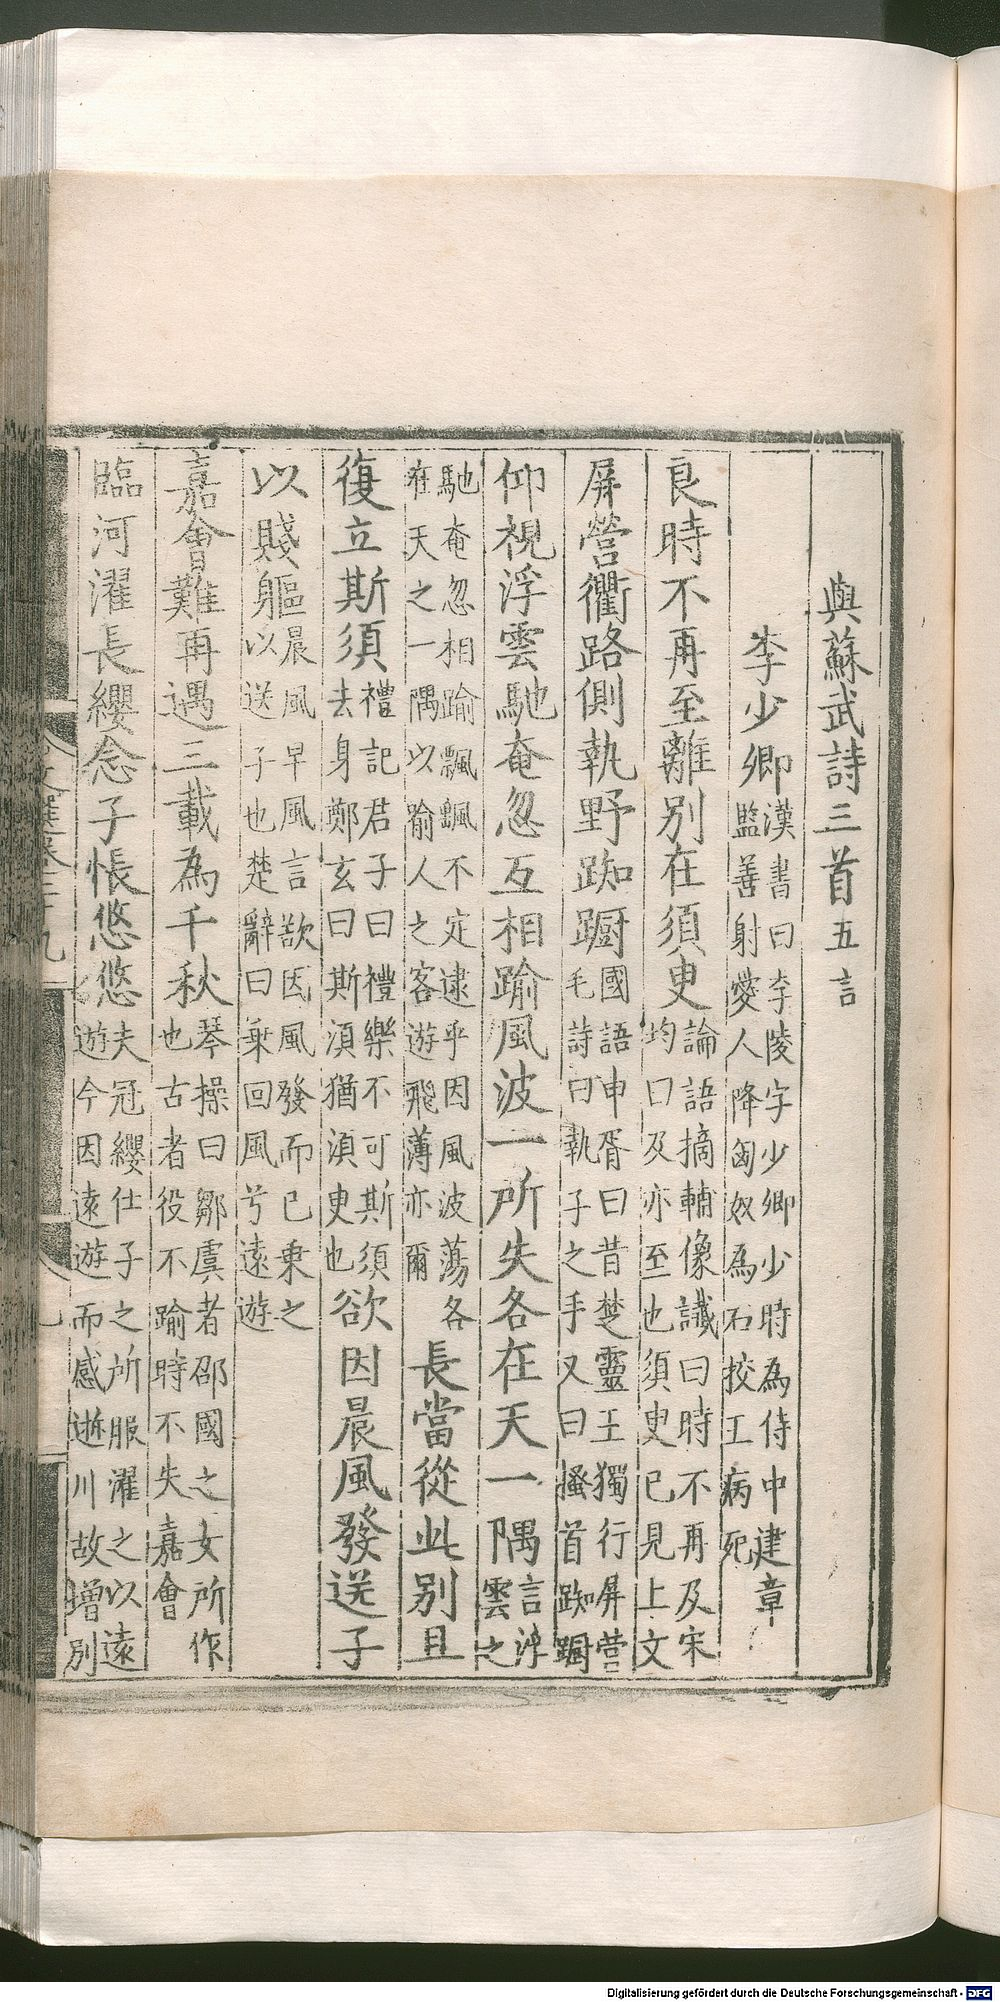 與蘇武詩三首五言
李少卿漢書曰李陵字少卿少時為侍中建章
監善射愛人降匈奴為石挍王病死
良時不再至離別在須臾論語摘輔像讖曰時不再及宋
均曰及亦至也須臾已見上文
屏營衢路側執野踟蹰國語申胥曰昔楚靈王獨行屏營
毛詩曰執子之手又曰搔首踟蹰
仰視浮雲馳奄忽互相踰風波一所失各在天一隅言浮
雲之
馳奄忽相踰飄颻不定逮乎因風波蕩各
在天之一隅以喻人之客遊飛薄亦爾長當從此別且
復立斯須禮記君子曰禮樂不可斯須
去身鄭玄曰斯湏猶湏臾也欲因晨風發送子
以賤軀晨風早風言欲因風發而已乗之
以送子也楚辭曰乗回風兮遠遊
嘉會難再遇三載為千秋琴操曰鄒虞者邵國之女所作
也古者役不踰時不失嘉會
臨河濯長纓念子悵悠悠夫冠纓仕子之所服濯之以遠
遊今因遠遊而感逝川故增別
文選卷二十九
Digitalisierung gefördert durch die Deutsche Forschungsgemeinschaft - DFG